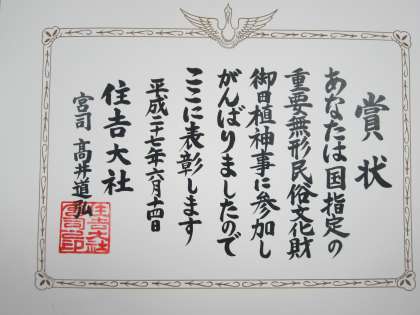 賞状
あなたは国指定の
重要無形民俗文化財
御田植神事に参加し
がんばりましたので
ここに表彰します
平成二十七年六月十四日
住吉大社
宮司 髙井道弘
住吉大社
宮司之印